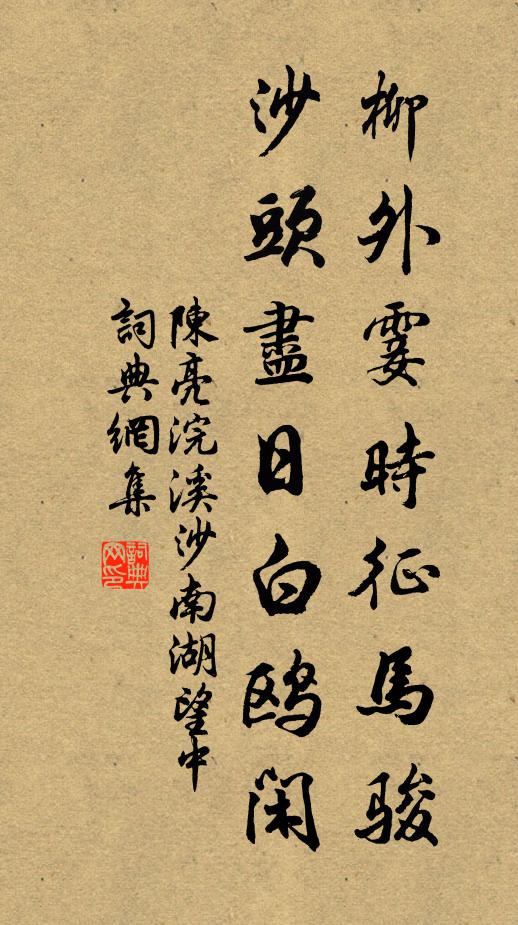 柳外霎時征馬駿
沙頭盡日白鷗閑
陳亮浣溪沙南湖望中
詞典網集
詞典網印